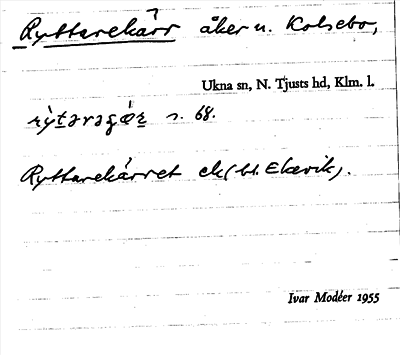 Ryttarekärr åker u. Kolsebo,
Ukna sn, N. Tjusts hd, Klm. l.
s. 68.
Ryttarekärret ek (bl. Ekevik).
Ivar Modéer 1955